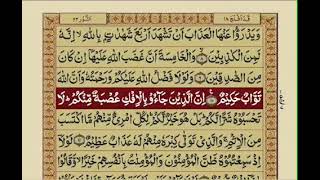 قَدْ اَفْلَحَ ١٨
النُّوْر ٢٤
وَيَدْرَؤُا عَنْهَا الْعَذَابَ اَنْ تَشْهَدَ اَرْبَعَ شَهٰدٰتٍۢ بِاللّٰهِ اِنَّهٗ
لَمِنَ الْكٰذِبِيْنَ ۝ وَالْخَامِسَةَ اَنَّ غَضَبَ اللّٰهِ عَلَيْهَآ اِنْ كَانَ
مِنَ الصّٰدِقِيْنَ ۝ وَلَوْلَا فَضْلُ اللّٰهِ عَلَيْكُمْ وَرَحْمَتُهٗ وَاَنَّ اللّٰهَ
تَوَّابٌ حَكِيْمٌ ۝ اِنَّ الَّذِيْنَ جَآءُوْ بِالْاِفْكِ عُصْبَةٌ مِّنْكُمْ ؕ لَا
تَحْسَبُوْهُ شَرًّا لَّكُمْ ؕ بَلْ هُوَ خَيْرٌ لَّكُمْ ؕ لِكُلِّ امْرِئٍ مِّنْهُمْ مَّا اكْتَسَبَ
مِنَ الْاِثْمِ ۚ وَالَّذِيْ تَوَلّٰى كِبْرَهٗ مِنْهُمْ لَهٗ عَذَابٌ عَظِيْمٌ ۝ لَوْلَآ
اِذْ سَمِعْتُمُوْهُ ظَنَّ الْمُؤْمِنُوْنَ وَالْمُؤْمِنٰتُ بِاَنْفُسِهِمْ خَيْرًا ۙ وَّقَالُوْا